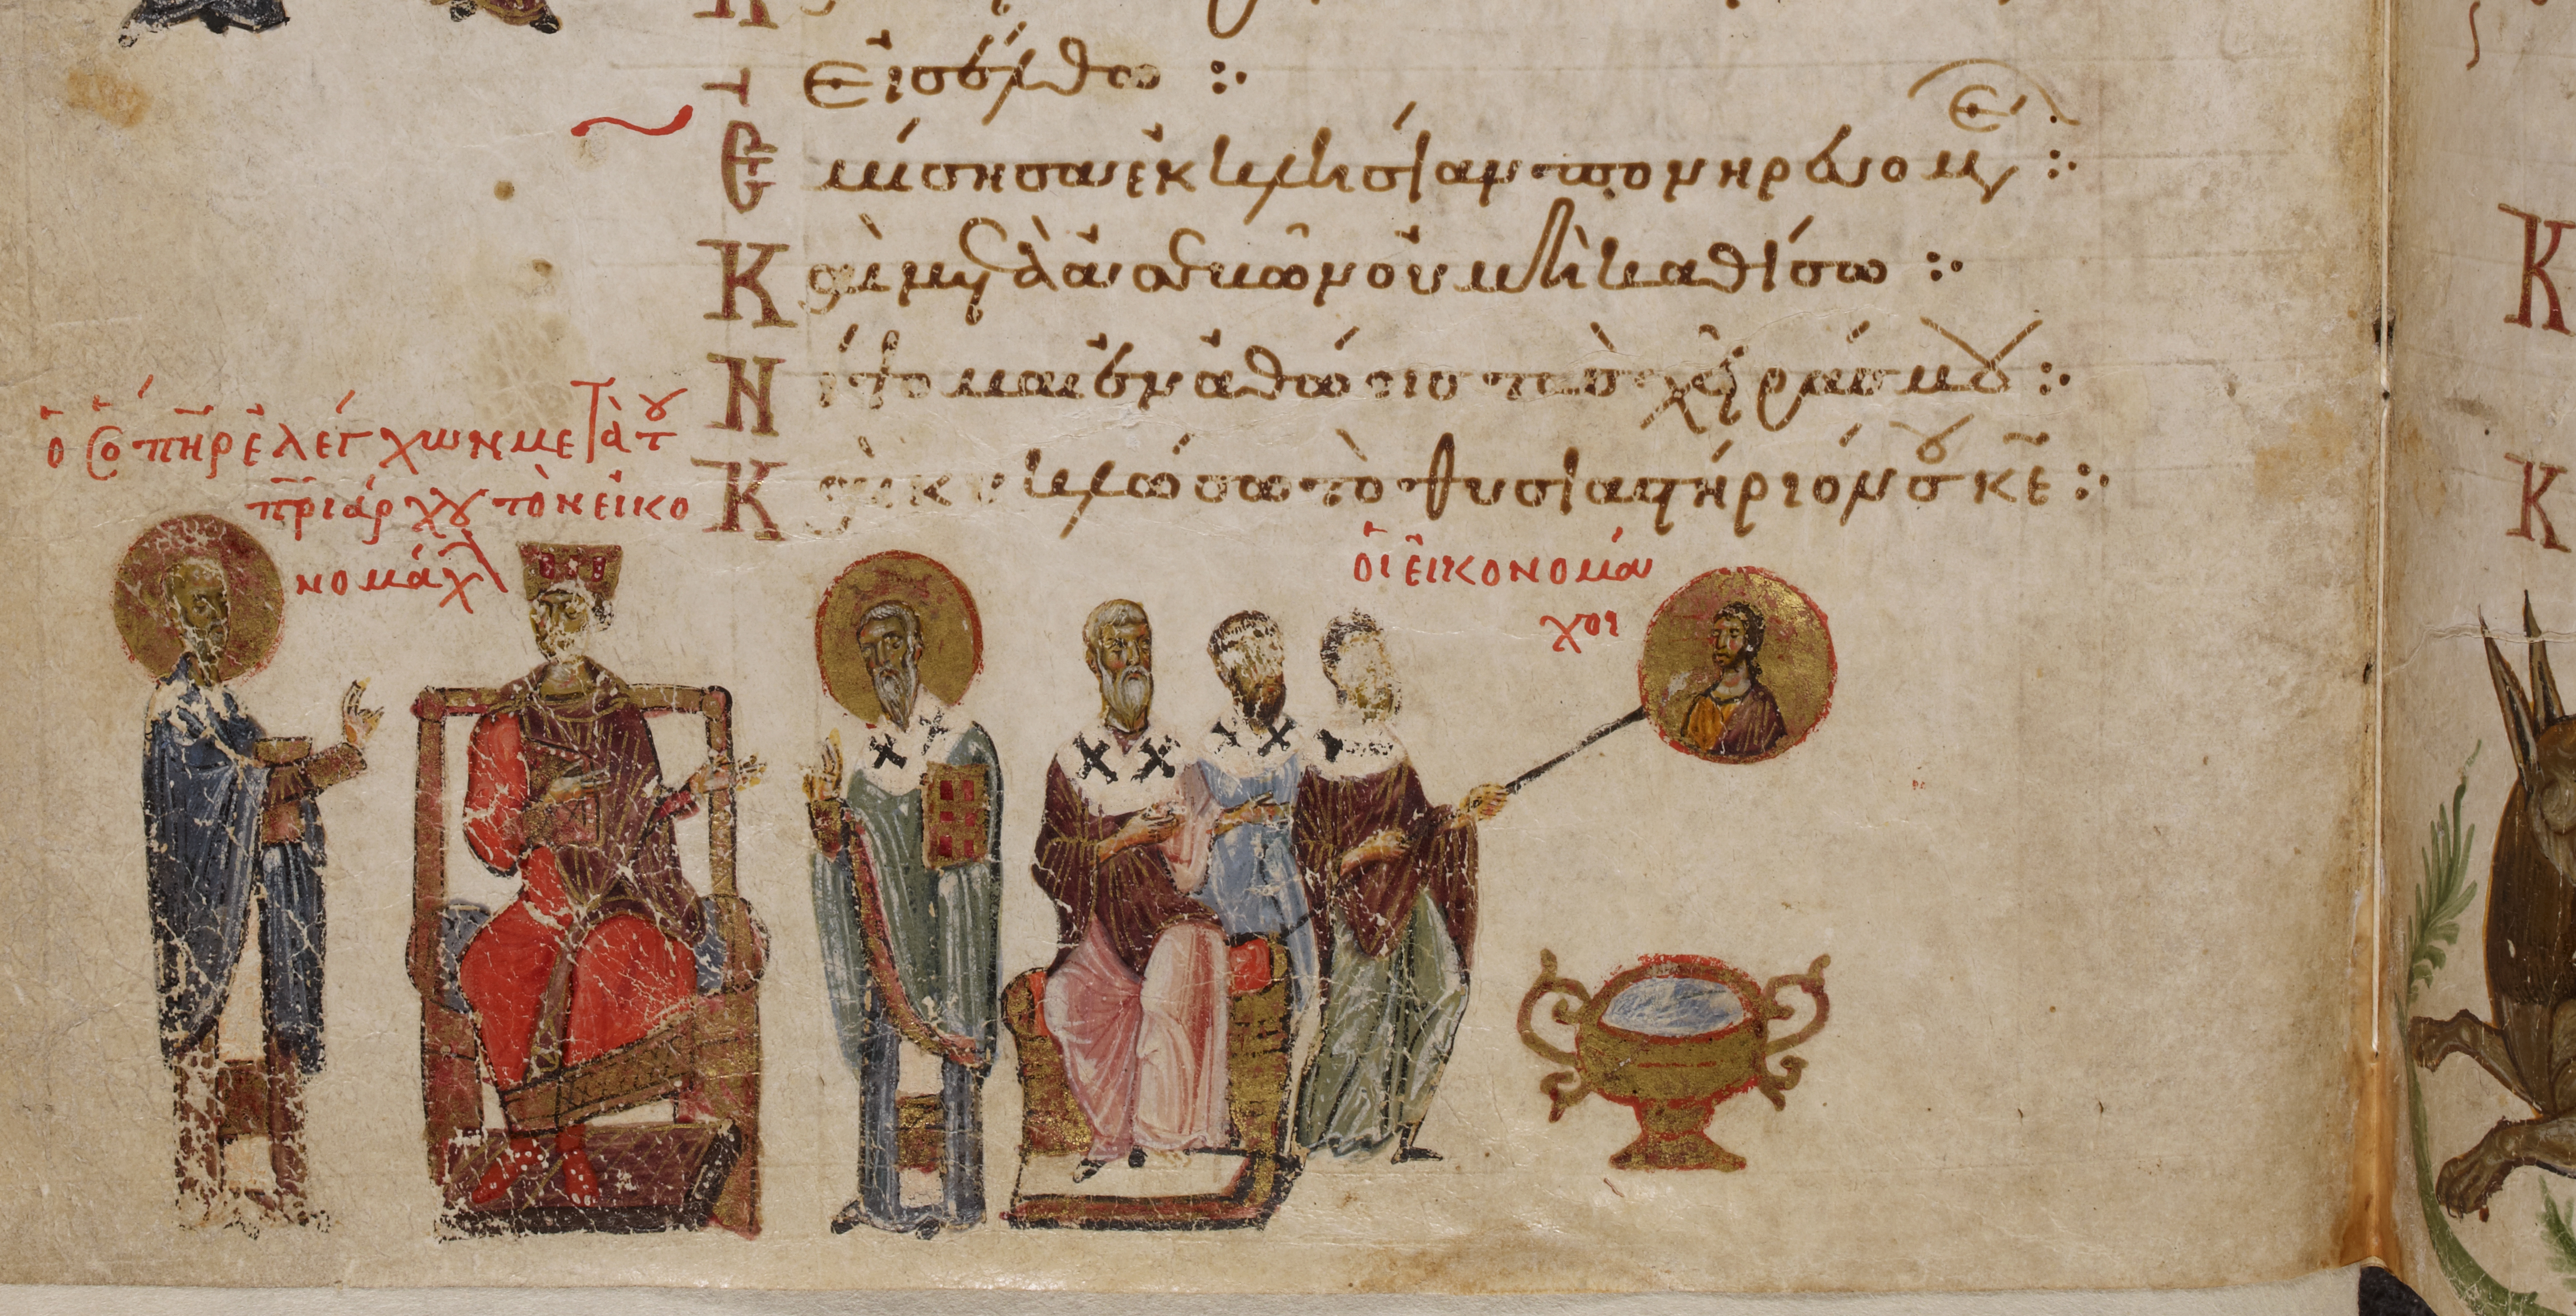 Εἰσέλθω :·
Ἐμίσησα ἐκκλησίαν πονηρευομέν :·
Καὶ μετὰ ἀσεβῶν οὐ μὴ καθίσω :·
Νίψομαι ἐν ἀθώοις τὰς χεῖράς μου :·
Καὶ κυκλώσω τὸ θυσιαστήριόν σου κ̅ε̅ :·
ὁ ὅ π̅η̅ρ ἐλέγχων μετὰ τοῦ
π̅ριάρχου τὸν εἰκο
νομάχ
οἱ εἰκονομά
χοι